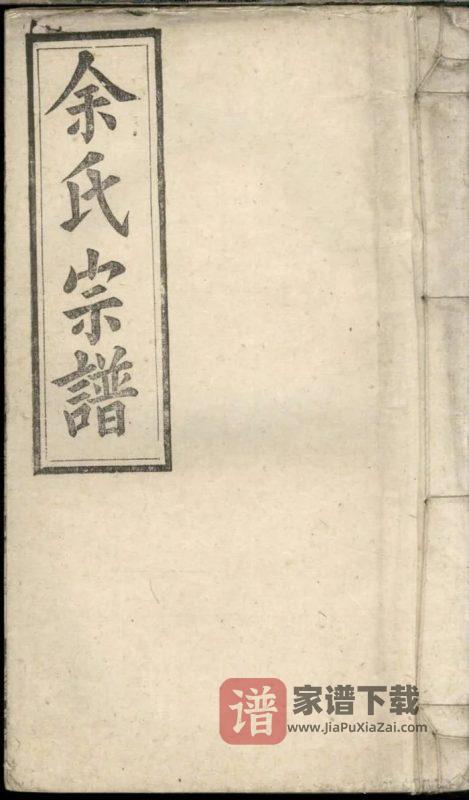 余氏宗譜
谱
家谱下载
www.JiaPuXiaZai.com